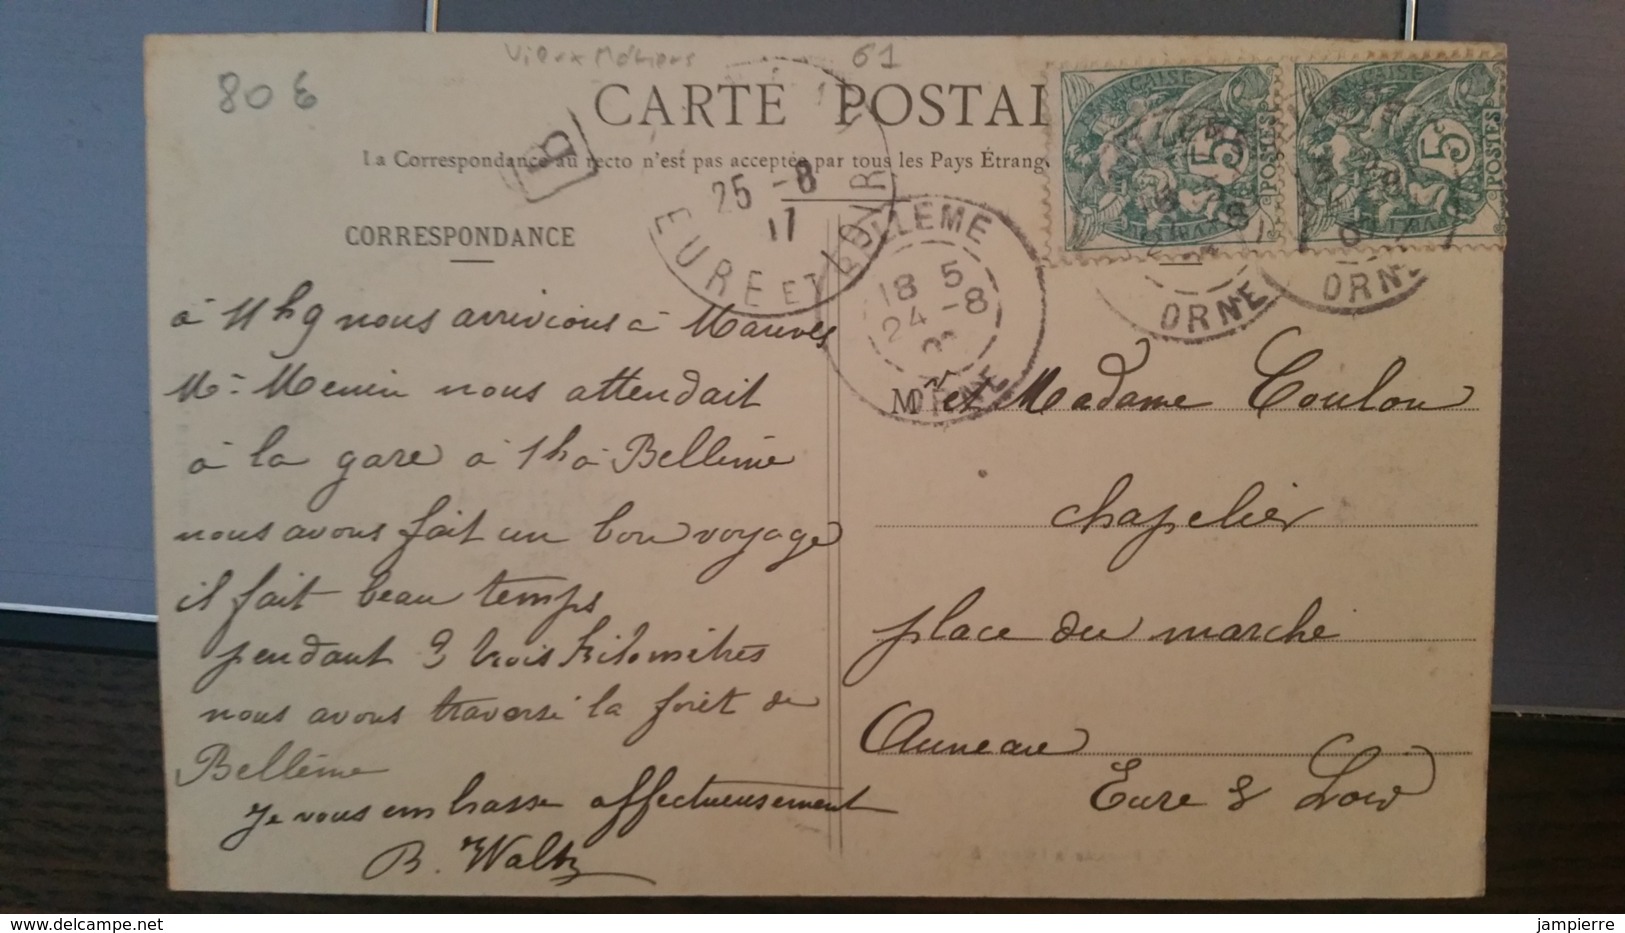 Vieux Métiers
61
80 €
CARTE POSTAL
La Correspondance au recto n'est pas acceptée par tous les Pays Étrang
CORRESPONDANCE
B
25 -8
17
EURE ET LOIR
BELLEME
18 5
24 -8
ORNE
FRANÇAISE
5c
POSTES
ORNE
5c
POSTES
ORNE
à 11 h 9 nous arrivions à Mauves
Mr Menin nous attendait
à la gare à 1 h à Bellême
nous avons fait un bon voyage
il fait beau temps
pendant 3 trois kilomètres
nous avons traversé la forêt de
Bellême
Je vous embrasse affectueusement
B. Waltz
Mr et Madame Coulon
chapelier
place du marché
Auneau
Eure & Loir
jampierre